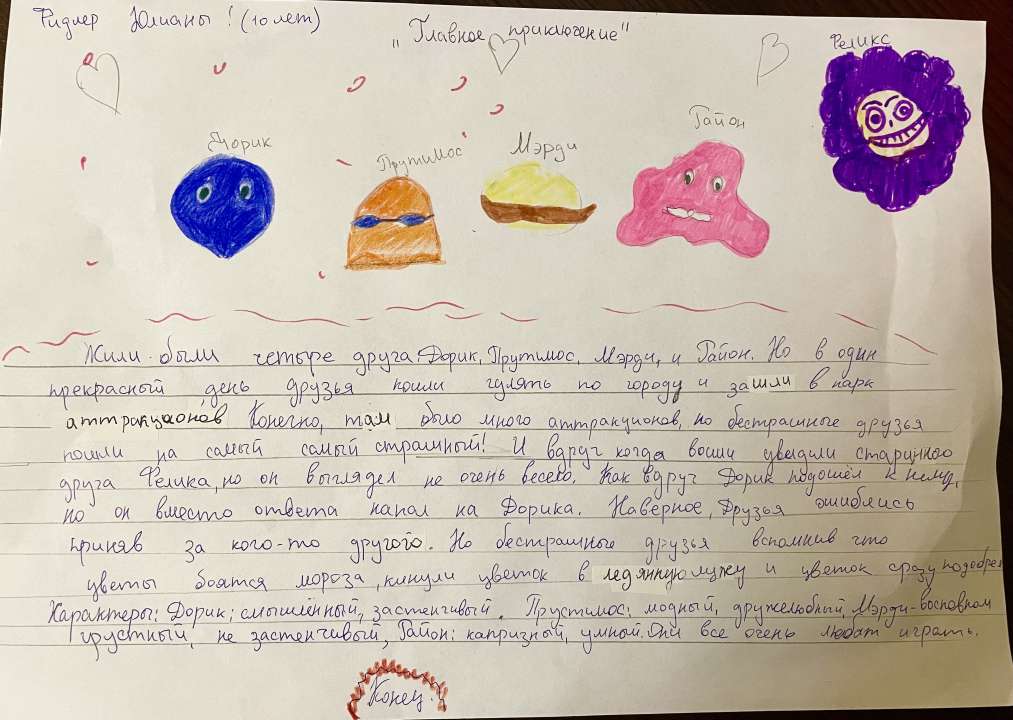 Ридлер Юлианы! (10 лет)
„Главное приключение"
Феликс
Дорик
Прутимос
Мэрди
Гайон
Жили-были четыре друга Дорик, Прутимос, Мэрди, и Гайон. Но в один
прекрасный день друзья пошли гулять по городу и зашли в парк
аттракционов Конечно, там было много аттракционов, но бесстрашные друзья
пошли на самый самый страшный! И вдруг когда вошли увидили старинного
друга Фелика, но он выглядел не очень весело. Как вдруг Дорик подошёл к нему,
но он вместо ответа напал на Дорика. Наверное, друзья ошиблись
приняв за кого-то другого. Но бестрашные друзья вспомнив что
цветы боятся мороза, кинули цветок в ледянную лужу и цветок сразу подобрел
Характеры: Дорик: смышлённый, застенчивый. Прустимос: модный, дружелюбный, Мэрди-восновном
грустный, не застенчивый, Гайон: капризный, умный. Они все очень любят играть.
Конец.